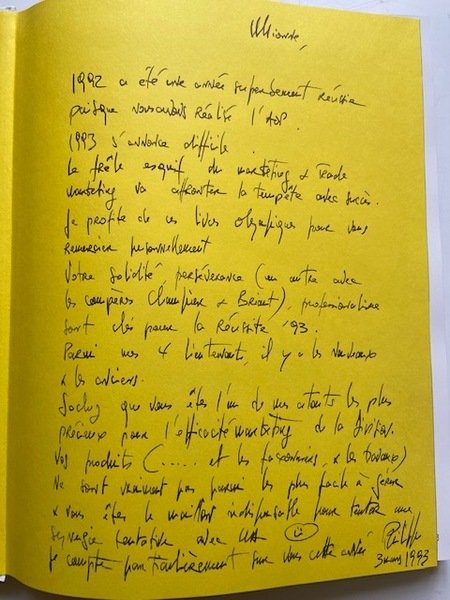 1992 a été une année superbement réussie
puisque nous avons réalisé l'
1993 s'annonce difficile.
Le frêle esquif du marketing & Trade
marketing va affronter la tempête avec succès.
Je profite de ces livres olympiques pour vous
remercier personnellement
Votre solidité persévérance (en outre avec
les compères & Briant), professionnalisme
sont clés pour la Réussite '93.
Parmi mes 4 lieutenants, il y a les nouveaux
& les anciens.
Sachez que vous êtes l'un de mes atouts les plus
précieux pour l'efficacité marketing de la
Vos produits (..... et les façonniers, & les)
Ne sont vraiment pas parmi les plus facile à gérer
& vous êtes le maillon indispensable pour tenter une
synergie tentative avec
Je compte particulièrement sur vous cette année
3 mars 1993